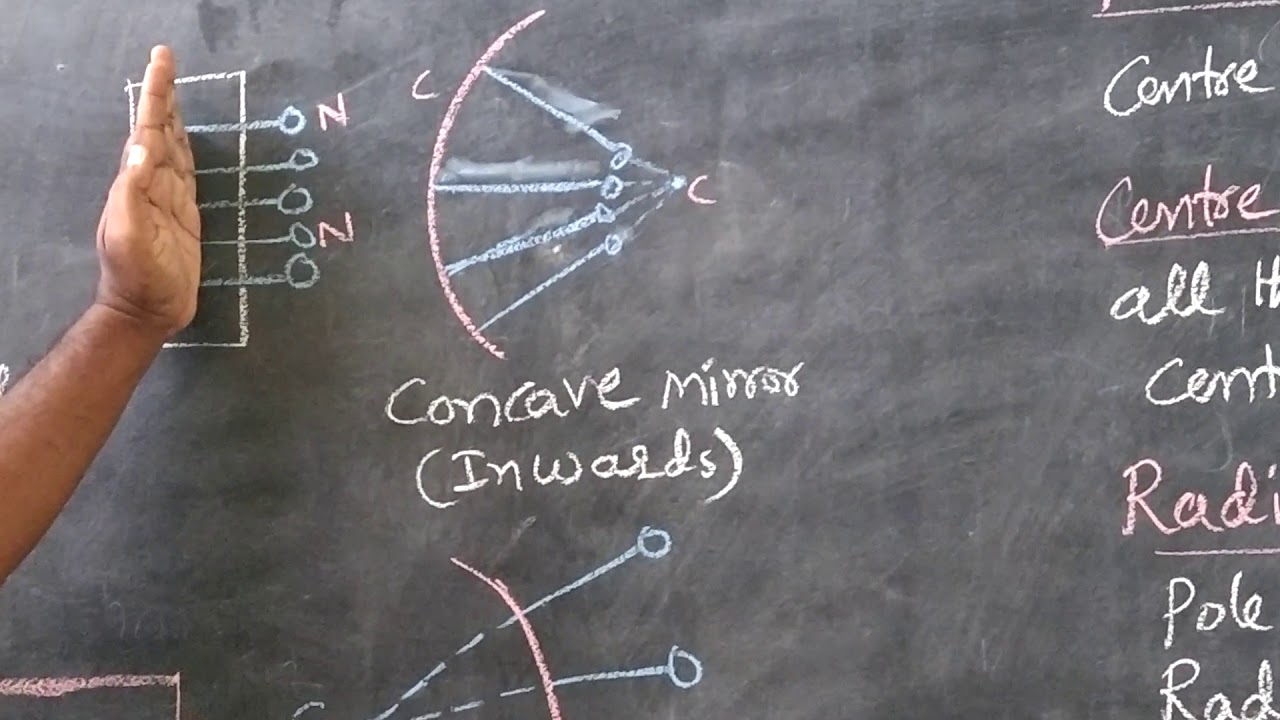 N
N
C
C
Concave mirror
(Inwards)
C
Centre
Centre
all
Radi
Pole
Rad